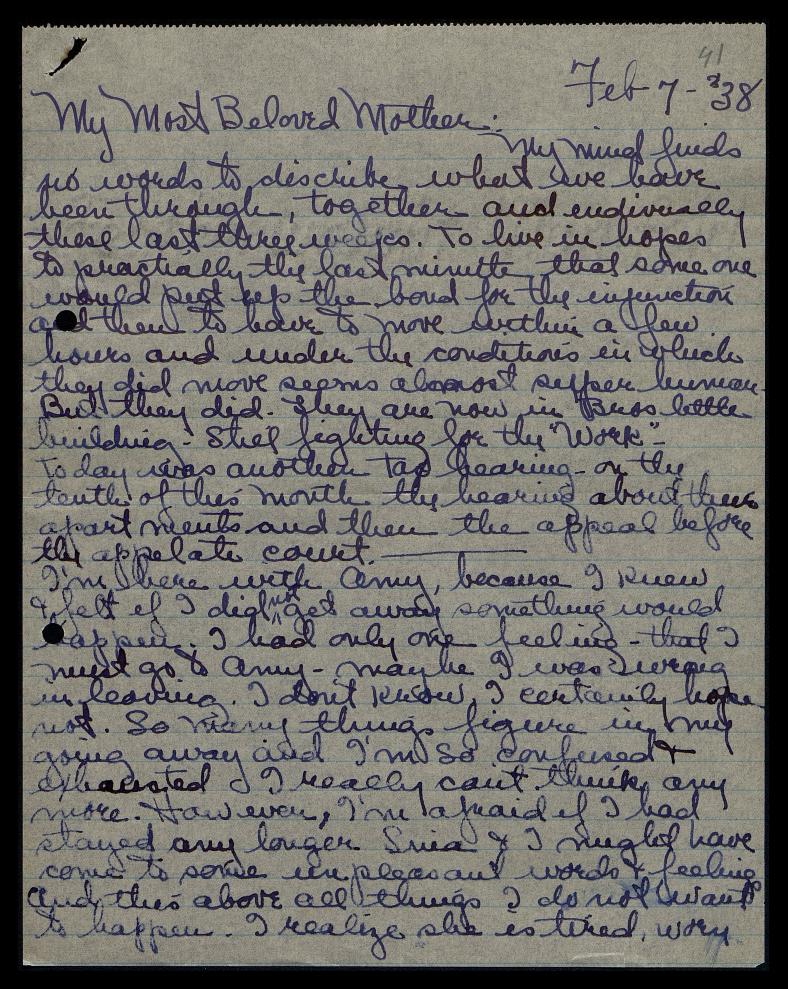 41
Feb 7 - 38
My Most Beloved Mother:
My mind finds
no words to describe what we have
been through, together and endiverally
these last three weeks. To live in hopes
to practially the last minutte that some one
would put up the bond for the injunction
and then to have to move within a few
hours and under the conditions in which
they did move seems almost supper human.
But they did. They are now in Bros little
building - Still fighting for the "Work" -
Today was another Tax hearing - on the
tenth of this month the hearing about these
apartments and then the appeal before
the appelate court. ————
I'm here with Amy, because I knew
& felt if I did not get away something would
happen. I had only one feeling - that I
must go to Amy - maybe I was wrong
in leaving. I don't know, I certainly hope
not. So many things figure in my
going away and I'm so confused &
exhausted I really can't think any
more. However, I'm afraid if I had
stayed any longer Sria & I might have
come to some unpleasant words & feeling
And this above all things I do not want
to happen. I realize she is tired, wory